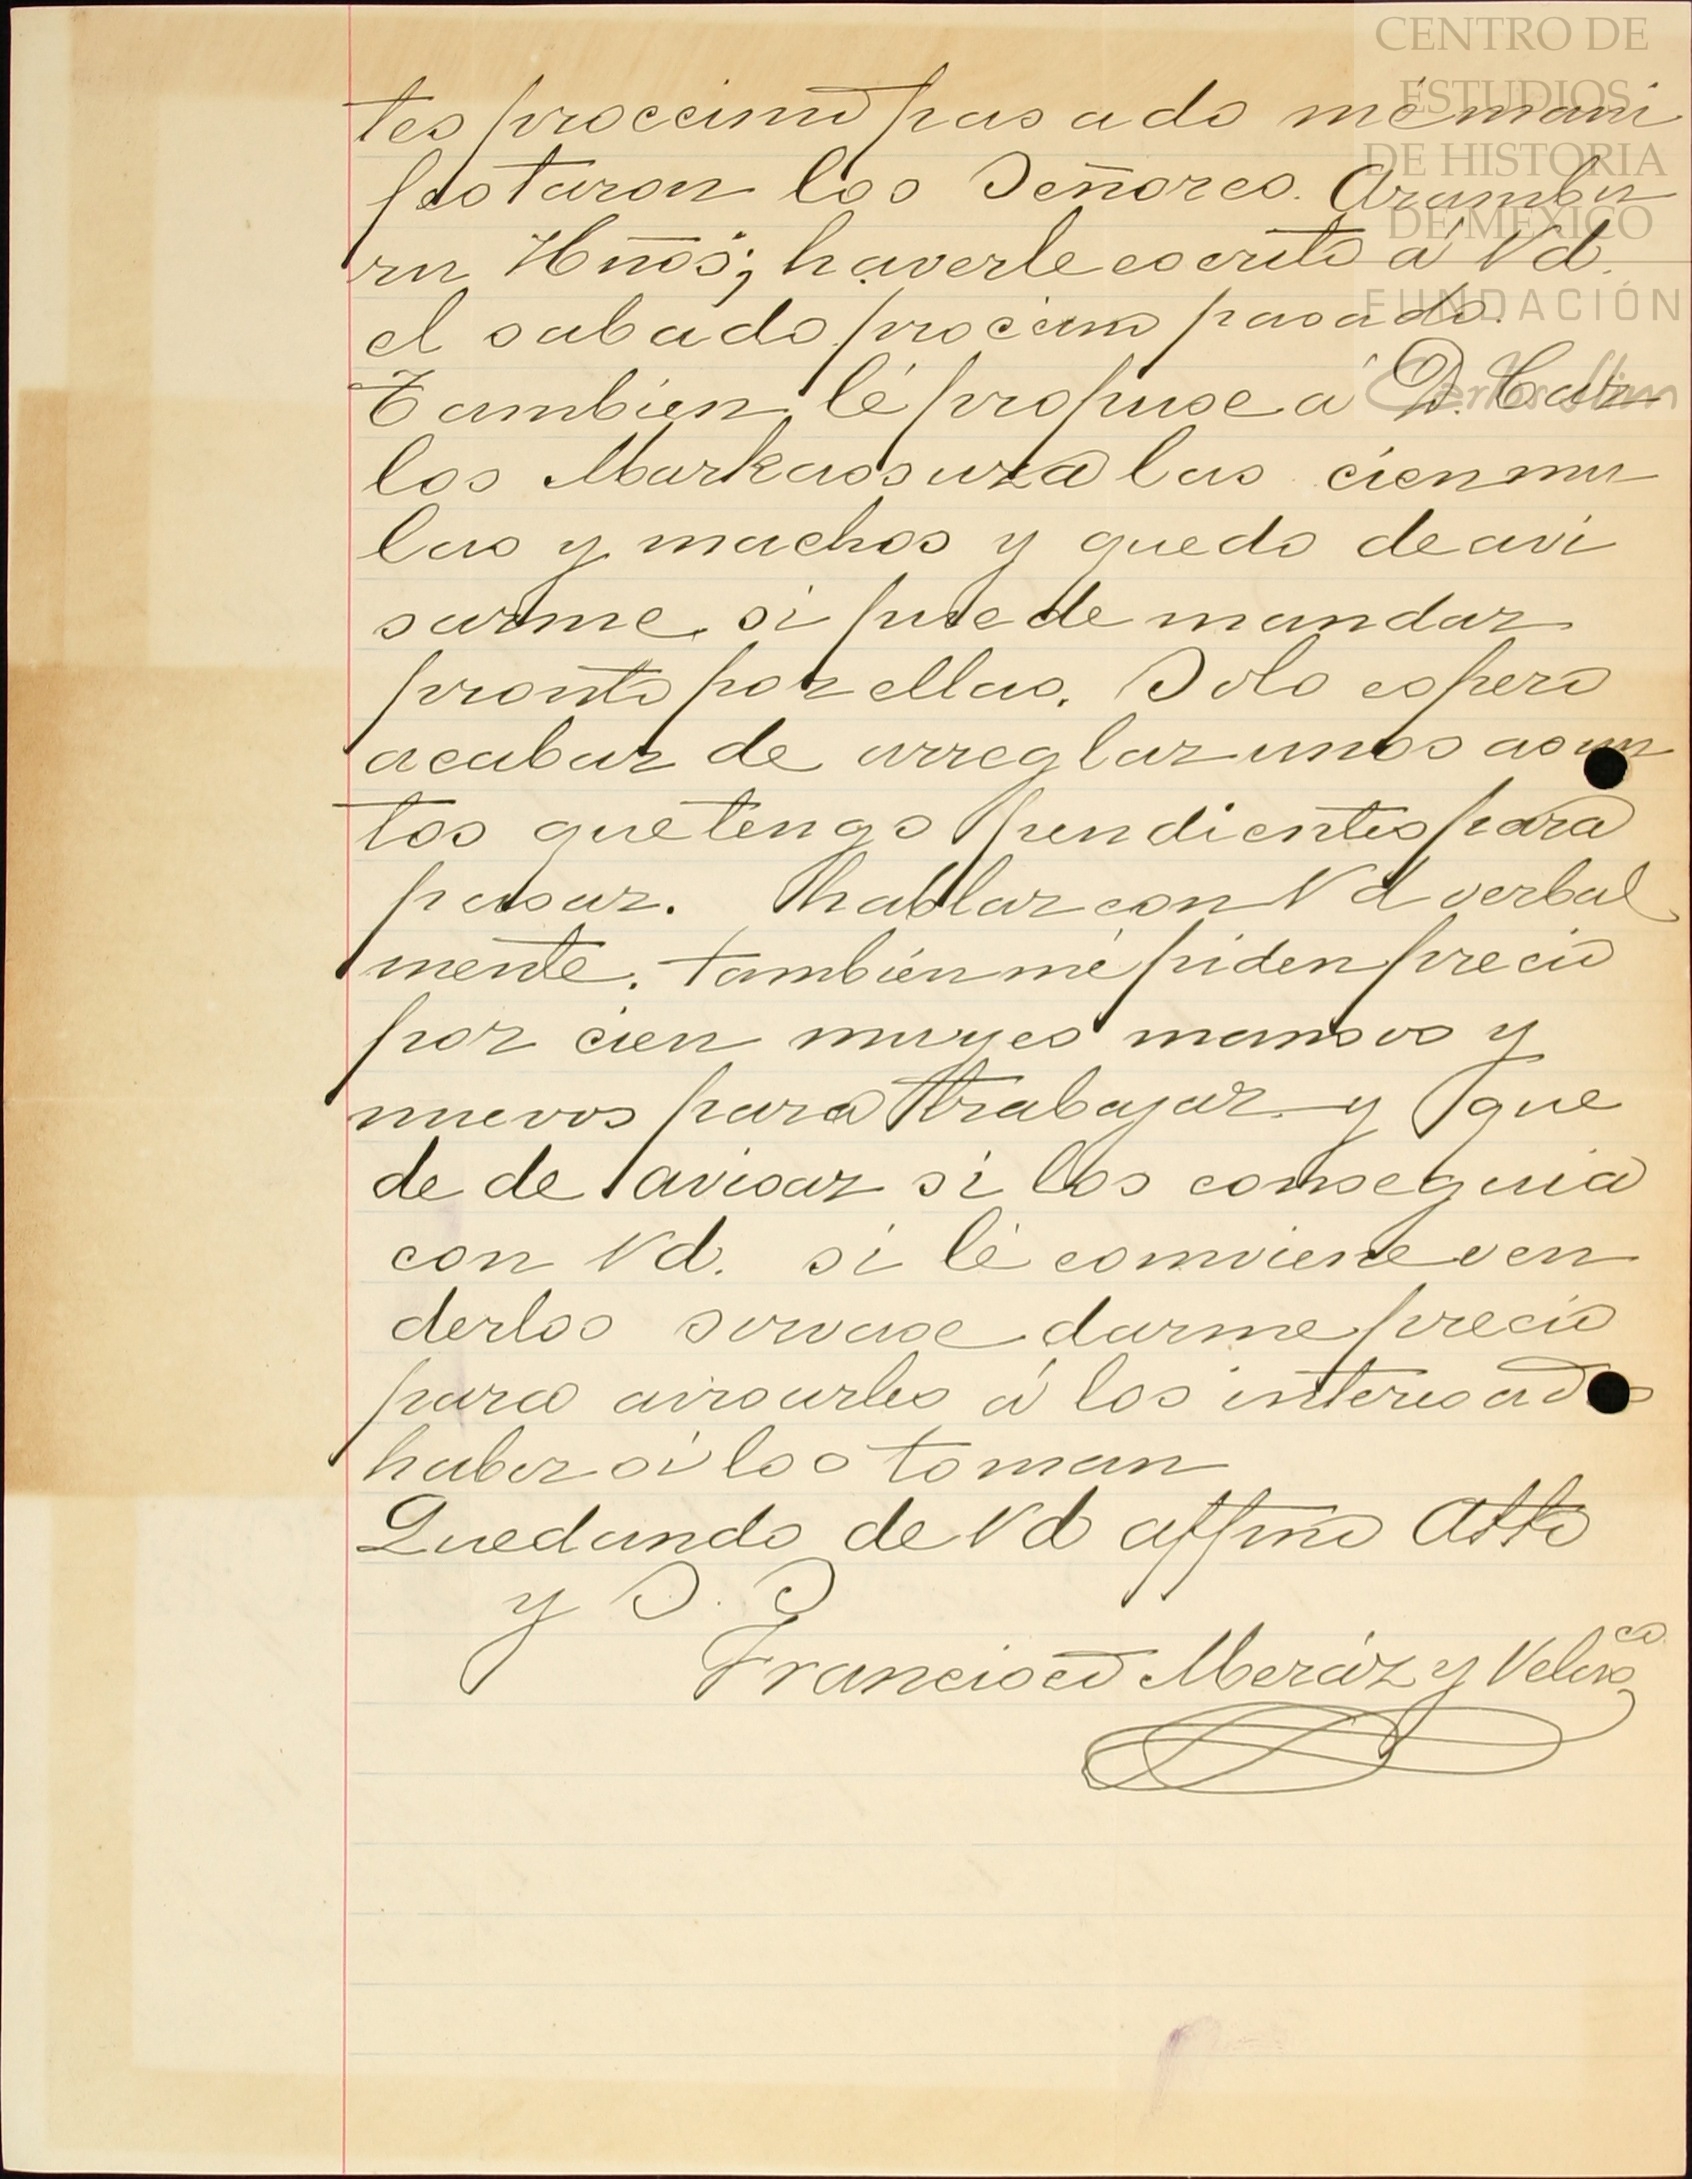 CENTRO DE
ESTUDIOS
DE HISTORIA
DE MÉXICO
FUNDACIÓN
Carlos Slim
tes proccimo pasado mé mani
festaron los Señores. Arambu
ru Hnos; haverle escrito á Vd.
el sabado procimo pasado.
Tambien lé propuse a D. Car
los Markassuza las cien mu
las y machos y quedo de avi
sarme si puede mandar
pronto por ellas. Solo espero
acabar de arreglar unos asun
tos que tengo pendientes para
pasar. hablar con Vd verbal
mente. también mé piden precio
por cien muyes mansos y
nuevos para trabajar y que
de de avisar si los conseguia
con Vd. si lé comviene ven
derlos sirvase darme precio
para avisarles á los interesados
haber si los toman
Quedando de Vd affmo Atto
y S. S
Francisco Meráz y Velasco